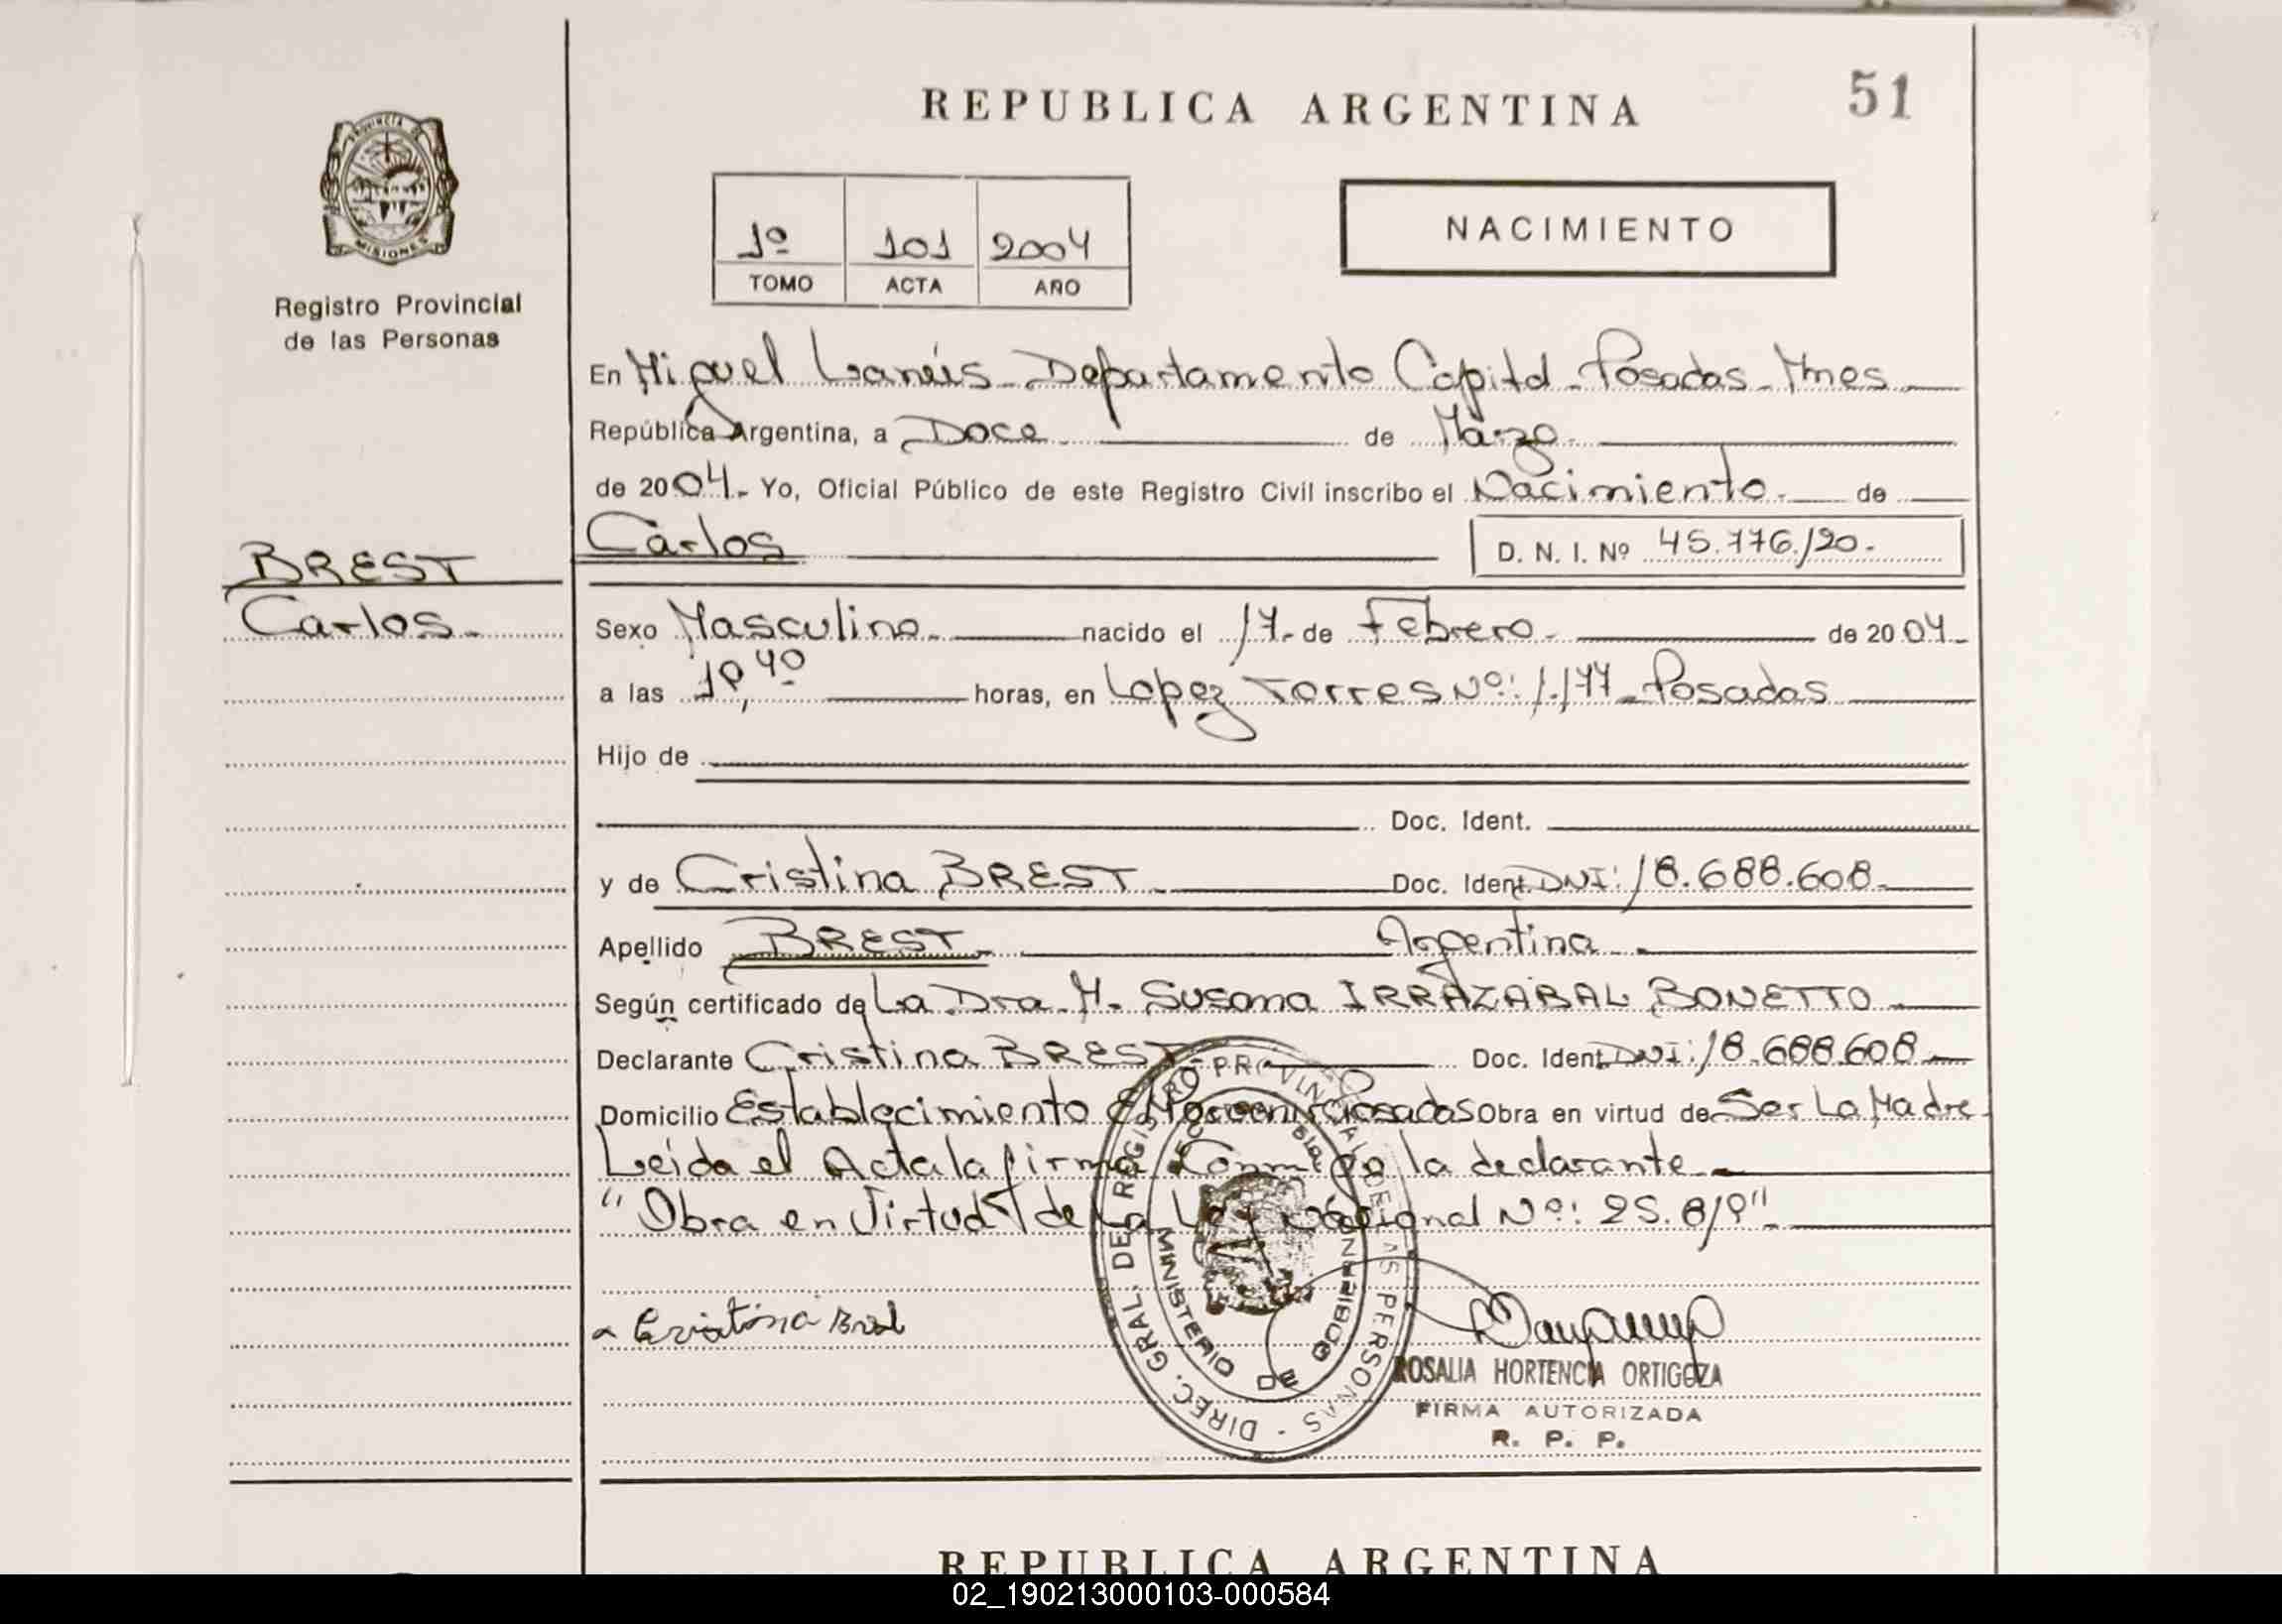 REPUBLICA ARGENTINA
51
PROVINCIA DE
MISIONES
Registro Provincial
de las Personas
1º 101 2004
TOMO ACTA AÑO
NACIMIENTO
En Miguel Lanús - Departamento Capital - Posadas - Mnes
República Argentina, a Doce de Marzo
de 2004.- Yo, Oficial Público de este Registro Civil inscribo el Nacimiento de
Carlos
D. N. I. Nº 45.776.120.-
BREST
Carlos.-
Sexo Masculino.- nacido el 17.- de Febrero.- de 2004.-
a las horas, en Lopez Torres Nº: 1.177 - Posadas
Hijo de
Doc. Ident.
y de Cristina BREST.- Doc. Ident. DNI: 18.688.608.-
Apellido BREST.- Argentina.-
Según certificado de La Dra. M. Susana IRRAZABAL BONETTO
Declarante Cristina BREST Doc. Ident. DNI: 18.688.608.-
Domicilio Establecimiento Posadas Obra en virtud de Ser La Madre.
Leída el Acta la firma Conmigo la declarante.-
"Obra en Virtud de La Ley Nacional Nº: 25.819".-
DIREC. GRAL. DEL REGISTRO PROVINCIAL DE LAS PERSONAS
MINISTERIO DE GOBIERNO
Cristina Brest
ROSALIA HORTENCIA ORTIGOZA
FIRMA AUTORIZADA
R. P. P.
REPUBLICA ARGENTINA
02_190213000103-000584